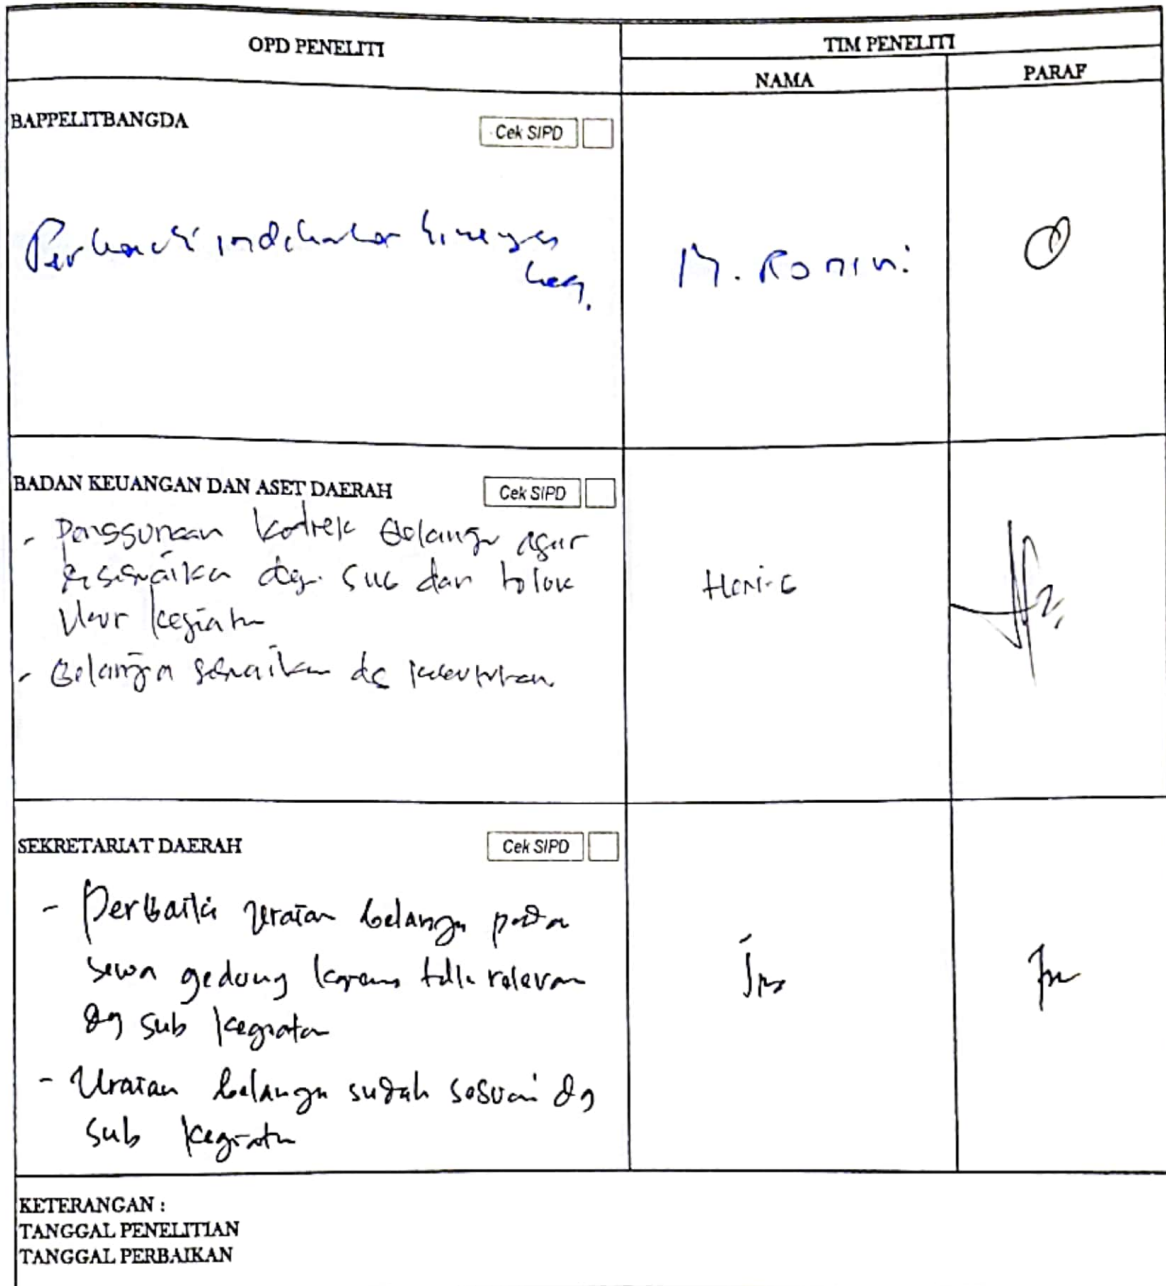 OPD PENELITI
TIM PENELITI
NAMA
PARAF
BAPPELITBANGDA
Cek SIPD
Perbaiki indikator kinerja
keg.
M. Ronini
BADAN KEUANGAN DAN ASET DAERAH
Cek SIPD
- Penggunaan kodrek Belanja agar
disesuaikan dgn. sub dan tolok
Ukur kegiatan
Heni
- Belanja sesuaikan dg kebutuhan
SEKRETARIAT DAERAH
Cek SIPD
- Perbaiki uraian belanja pada
sewa gedung karena tdk relevan
dg sub kegiatan
- Uraian belanja sudah sesuai dg
sub kegiatan
KETERANGAN :
TANGGAL PENELITIAN
TANGGAL PERBAIKAN